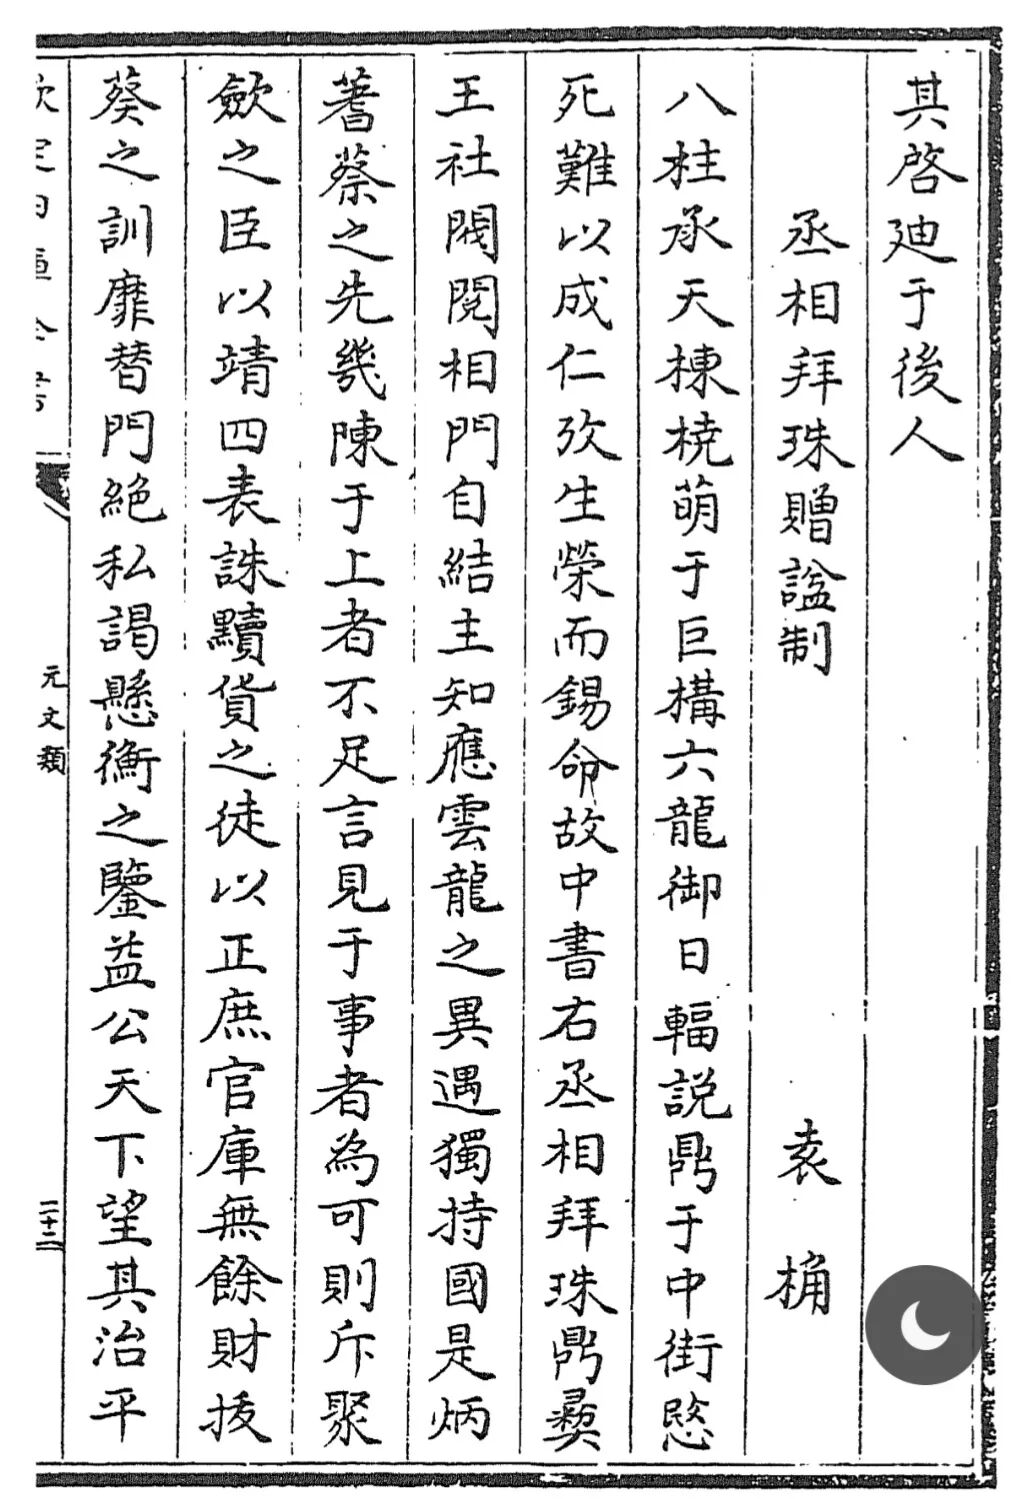 其啓廸于後人
丞相拜珠贈諡制 袁桷
八柱承天棟橈萌于巨構六龍御日輻説鼎于中街愍
死難以成仁攷生榮而錫命故中書右丞相拜珠鼎彝
王社閥閱相門自結主知應雲龍之異遇獨持國是炳
蓍蔡之先幾陳于上者不足言見于事者為可則斥聚
斂之臣以靖四表誅黷貨之徒以正庶官庫無餘財拔
葵之訓靡替門絶私謁懸衡之鑒益公天下望其治平
元文類
二十二